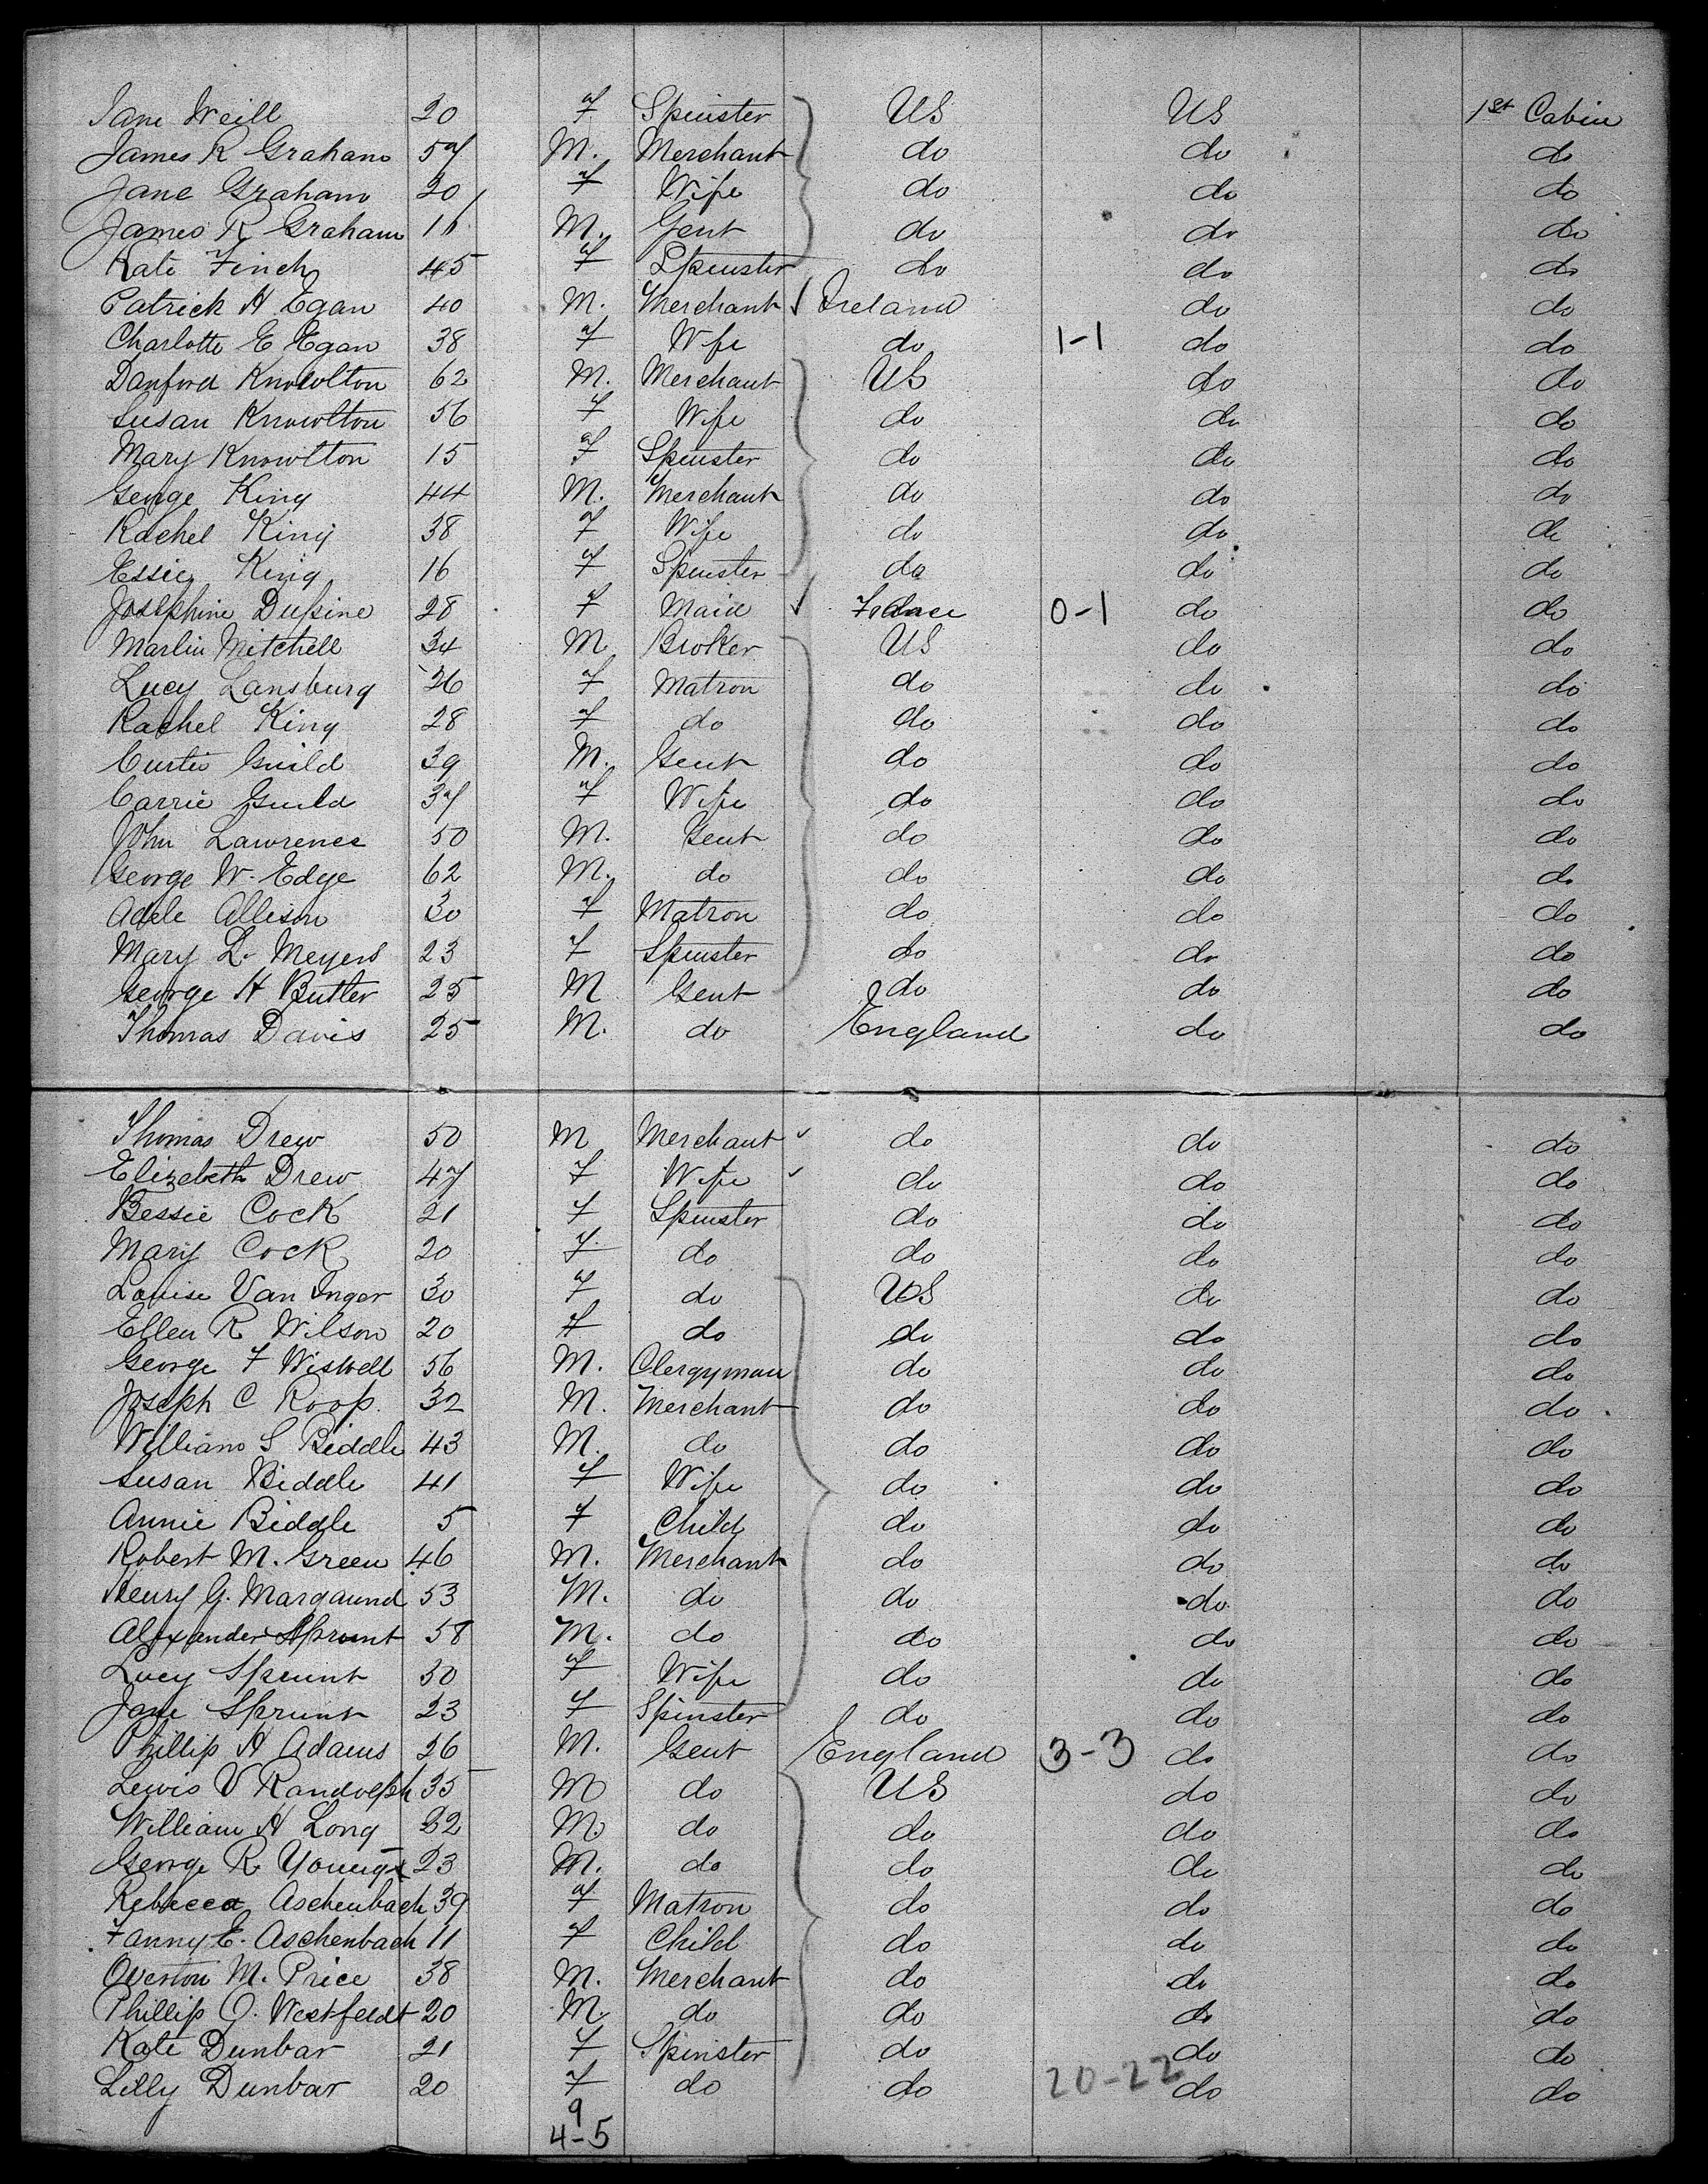 Jane Weill 20 F Spinster US US 1st Cabin
James R Graham 57 M. Merchant do do do
Jane Graham 20 F Wife do do do
James R Graham 16 M. Gent do do do
Kate Finch 45 F Spinster do do do
Patrick H Egan 40 M. Merchant ✓ Ireland do do
Charlotte E Egan 38 F Wife do 1-1 do do
Danford Knowlton 62 M. Merchant US do do
Susan Knowlton 56 F Wife do do do
Mary Knowlton 15 F Spinster do do do
George King 44 M. Merchant do do do
Rachel King 38 F Wife do do do
Essie King 16 F Spinster do do do
Josephine Dupine 28 F Maid ✓ France 0-1 do do
Marlin Mitchell 34 M Broker US do do
Lucy Lansburg 26 F Matron do do do
Rachel King 28 F do do do do
Curtis Guild 39 M. Gent do do do
Carrie Guild 37 F Wife do do do
John Lawrence 50 M. Gent do do do
George W. Edge 62 M. do do do do
Adele Allison 30 F Matron do do do
Mary L. Meyers 23 F Spinster do do do
George H Butler 25 M Gent do do do
Thomas Davis 25 M. do England do do
Thomas Drew 50 M Merchant ✓ do do do
Elizabeth Drew 47 F Wife ✓ do do do
Bessie Cock 21 F Spinster do do do
Mary Cock 20 F. do do do do
Louise Van Inger 30 F do US do do
Ellen R Wilson 20 F do do do do
George F Wiswell 56 M. Clergyman do do do
Joseph C Roop. 32 M. Merchant do do do
William S Biddle 43 M. do do do do
Susan Biddle 41 F Wife do do do
Annie Biddle 5 F Child do do do
Robert M. Green 46 M. Merchant do do do
Henry G. Margaund 53 M. do do do do
Alexander Sprunt 58 M. do do do do
Lucy Sprunt 30 F Wife do do do
Jane Sprunt 23 F Spinster do do do
Phillip H Adams 26 M. Gent England 3-3 do do
Lewis V Randolph 35 M do US do do
William H Long 22 M. do do do do
George R Young 23 M. do do do do
Rebecca Aschenbach 39 F Matron do do do
Fanny E. Aschenbach 11 F Child do do do
Overton M. Price 38 M. Merchant do do do
Phillip O. Westfeldt 20 M. do do do do
Kate Dunbar 21 F Spinster do do do
Lilly Dunbar 20 F do do 20-22 do do
9
4-5